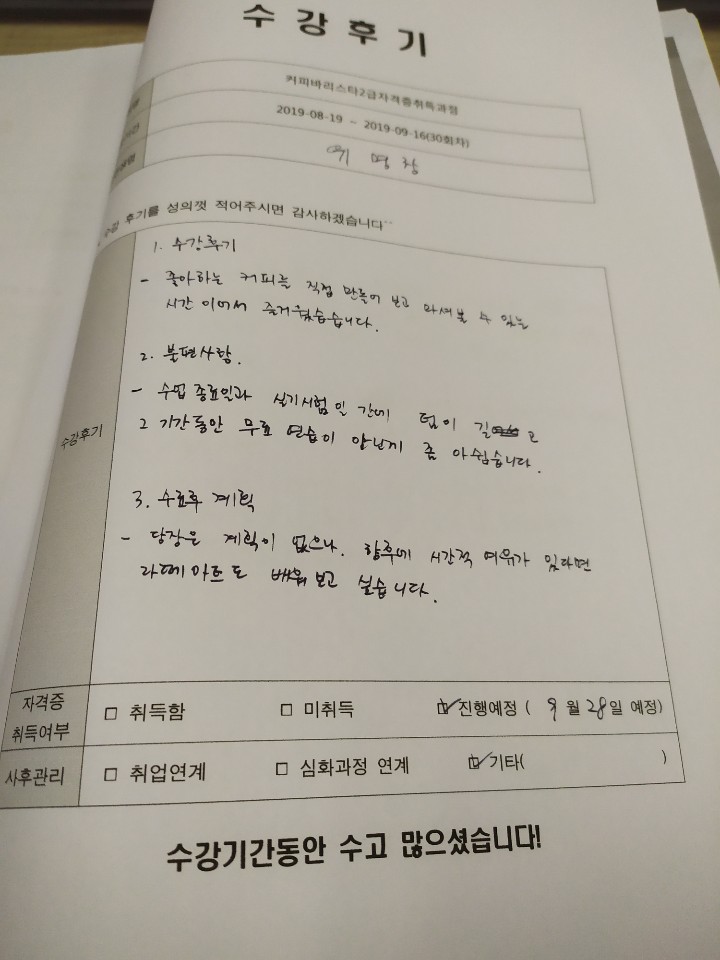 수 강 후 기
커피바리스타2급자격증취득과정
2019-08-19 ~ 2019-09-16(30회차)
명
수강 후기를 성의껏 적어주시면 감사하겠습니다^^
수강후기
1. 수강후기
- 좋아하는 커피를 직접 만들어 보고 마셔볼 수 있는
시간 이어서 즐거웠습습니다.
2. 불편사항.
- 수업 종료일과 실기시험 일 간에 텀이 길고
그 기간동안 무료 연습이 안난게 좀 아쉽습니다.
3. 수료후 계획
- 당장은 계획이 없으나. 향후에 시간적 여유가 있다면
라떼아트도 배워보고 싶습니다.
자격증 취득여부 □ 취득함 □ 미취득 ☑ 진행예정 ( 9 월 28일 예정)
사후관리 □ 취업연계 □ 심화과정 연계 ☑ 기타( )
수강기간동안 수고 많으셨습니다!